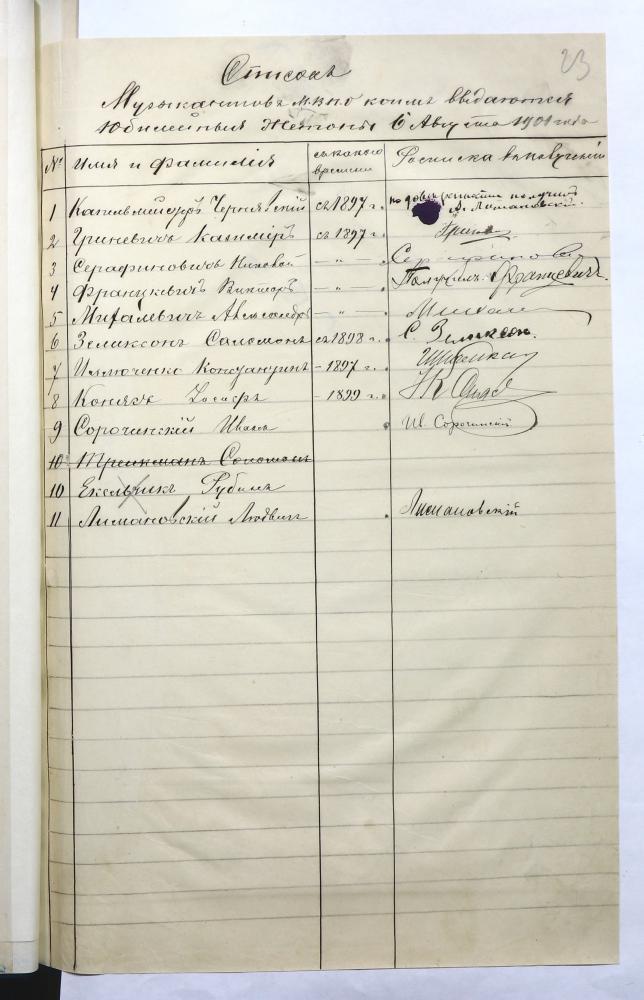 23
Списокъ
Музыкантовъ М.В.П.О коимъ выдаются
Юбилейныя Жетоны 6 Августа 1901 года
№ Имя и фамилія съ какого времени Росписка въ полученіи
1 Капельмейстръ Чернявскій съ 1897 г. по довѣр получилъ Л. Лимановскій
2 Гриневичъ Казиміръ съ 1897 г. Грине
3 Серафиновичъ Николай - " - Серафинови
4 Францкевичъ Викторъ - " - Получилъ Францкевичъ
5 Михалевичъ Александръ - " - Михале
6 Зеликсонъ Саломонъ съ 1898 г. С. Зеликсон.
7 Ильюченко Константинъ - 1897 г.
8 Коняж Іосифъ - 1899 г.
9 Сорочинскій Иванъ Ив. Сорочинскій
10 Трейкманъ Соломонъ
10 Екельчикъ Рубинъ
11 Лимановскій Людвигъ Лимановскій